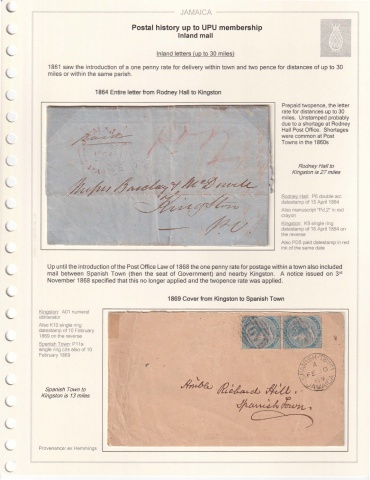 JAMAICA
Postal history up to UPU membership
Inland mail
Inland letters (up to 30 miles)
1861 saw the introduction of a one penny rate for delivery within town and two pence for distances of up to 30
miles or within the same parish.
1864 Entire letter from Rodney Hall to Kingston
Prepaid twopence, the letter
rate for distances up to 30
miles. Unstamped probably
due to a shortage at Rodney
Hall Post Office. Shortages
were common at Post
Towns in the 1860s
Rodney Hall to
Kingston is 27 miles
Rodney Hall: P6 double arc
datestamp of 15 April 1864
Also manuscript "Pd 2" in red
crayon
Kingston: K5 single ring
datestamp of 16 April 1864 on
the reverse
Also PD5 paid datestamp in red
ink of the same date
Paid
Messrs Barclay & McDowell
Kingston
Up until the introduction of the Post Office Law of 1868 the one penny rate for postage within a town also included
mail between Spanish Town (then the seat of Government) and nearby Kingston. A notice issued on 3rd
November 1868 specified that this no longer applied and the twopence rate was applied.
1869 Cover from Kingston to Spanish Town
Kingston: A01 numeral
obliterator
Also K10 single ring
datestamp of 10 February
1869 on the reverse
Spanish Town: P11a
single ring cds also of 10
February 1869
Spanish Town to
Kingston is 13 miles
SPANISH TOWN
JAMAICA
Honble Richard Hill,
Spanish Town.
Provenance: ex Hemmings